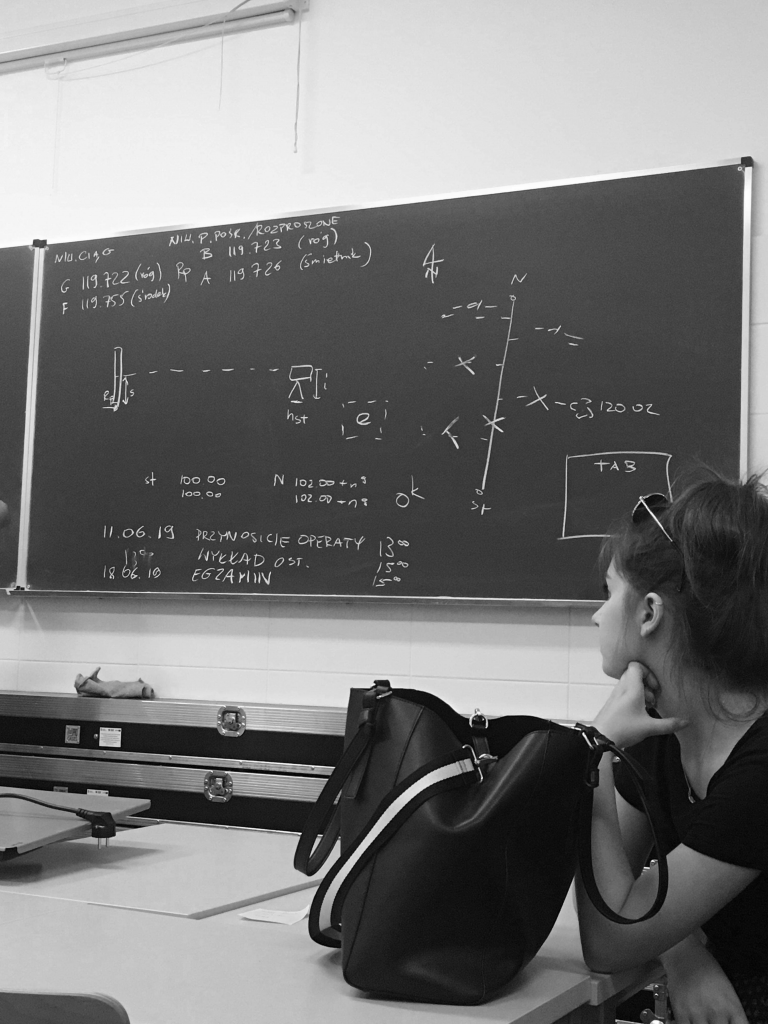 NIW. CIĄG
NIW. P. POŚR. / ROZPROSZONE
G 119.722 (róg) Rp B 119.723 (róg)
F 119.755 (środek) A 119.726 (śmietnik)
N
N
Rp s i
hst
e
120.02
st 100.00 N 102.00 + n°
100.00 102.00 + n°
0k
st
TAB
11.06.19 PRZYNOSICIE OPERATY 13⁰⁰
WYKŁAD OST. 15⁰⁰
18.06.19 EGZAMIN 15⁰⁰